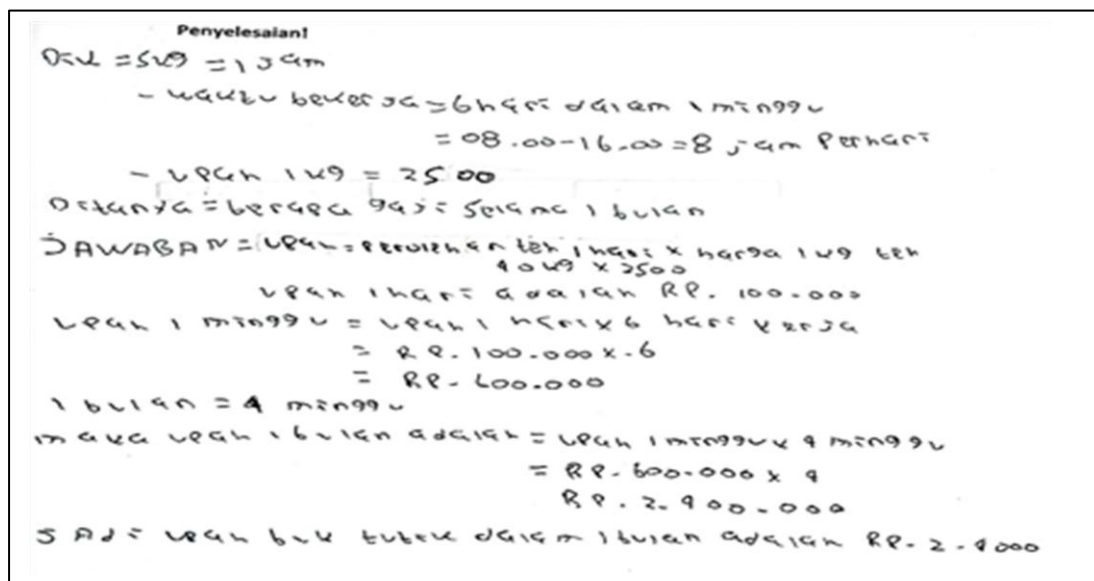 Penyelesaian!
Dik = 5kg = 1 jam
- waktu bekerja = 6 hari dalam 1 minggu
= 08.00-16.00 = 8 jam perhari
- upah 1 kg = 2500
Ditanya = berapa gaji selama 1 bulan
JAWABAN = upah = perolehan teh 1 hari x harga 1 kg teh
40 kg x 2500
upah 1 hari adalah RP. 100.000
upah 1 minggu = upah 1 hari x 6 hari kerja
= RP. 100.000 x . 6
= RP. 600.000
1 bulan = 4 minggu
maka upah 1 bulan adalah = upah 1 minggu x 4 minggu
= RP. 600.000 x 4
RP. 2.400.000
JAdi upah buk tutik dalam 1 bulan adalah RP. 2.4000